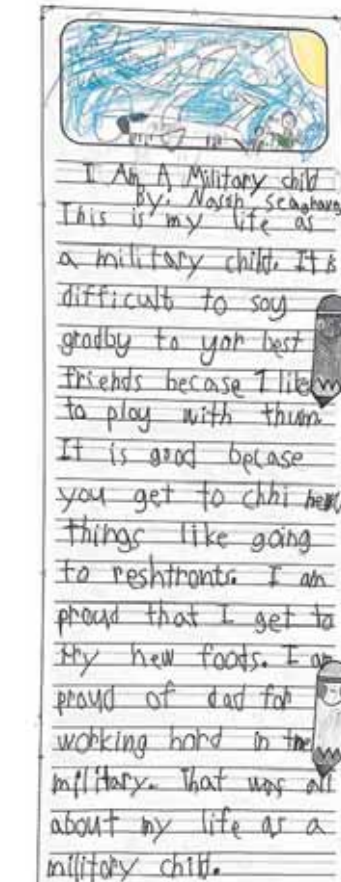 I Am A Military child
By: Nassh Seaghavg
This is my life as
a military child. It is
difficult to say
goodby to yor best
friends becase I like
to play with thum.
It is good becase
you get to chhi new
things like going
to reshtronts. I am
proud that I get to
try new foods. I am
proud of dad for
working hord in the
military. That was all
about my life as a
military child.